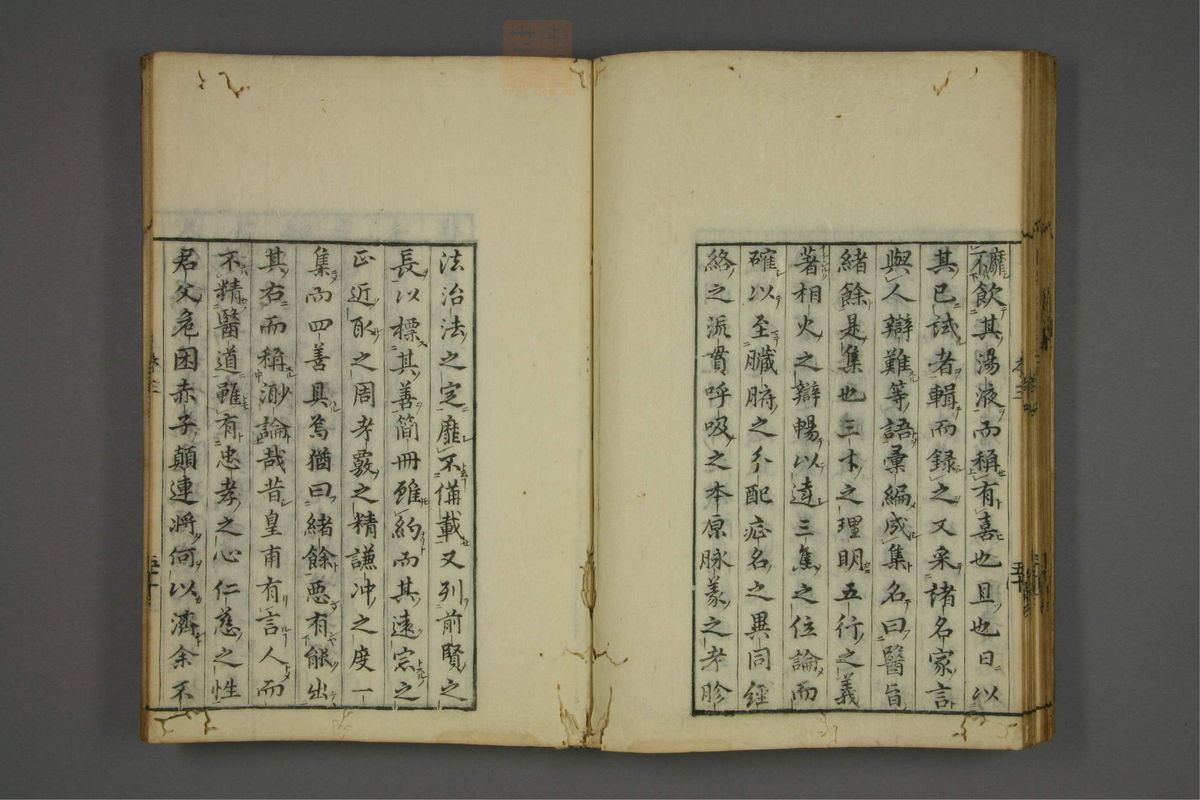 靡不飲其湯液而稱有喜也且也日以
其已試者輯而録之又采諸名家言
與人辯難等語彙編成集名曰醫旨
緒餘是集也三才之理明五行之義
著相火之辯暢以達三焦之位論而
確以至臟腑之分配症名之異同經
絡之派貫呼吸之本原脉義之考診
法治法之定靡不備載又列前賢之
長以標其善簡冊雖約而其遠宗之
正近取之周考覈之精謙冲之度一
集而四善具焉猶曰緒餘惡有能出
其右而稱渺論哉昔皇甫有言人而
不精醫道雖有忠孝之心仁慈之性
君父危困赤子顛連將何以濟余不